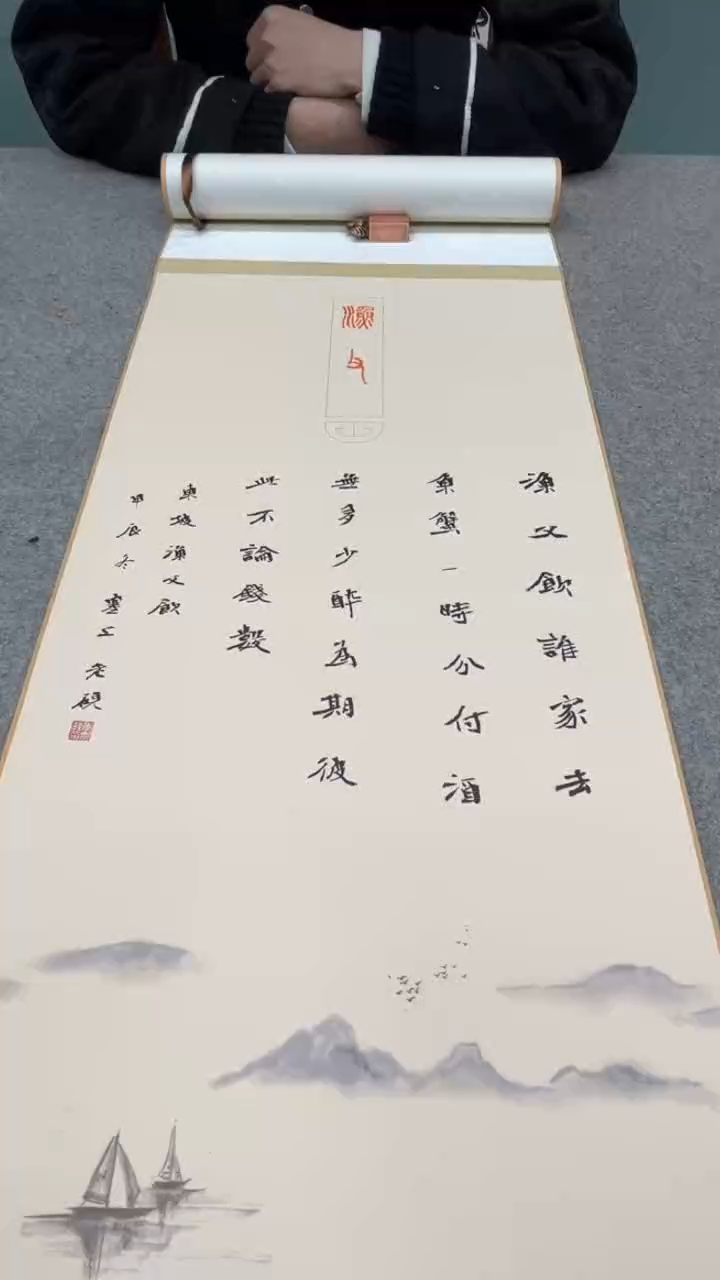 漁父
漁父飲誰家去
魚蟹一時分付酒
無多少醉為期彼
此不論錢數
東坡漁父飲
甲辰冬寒工老硯